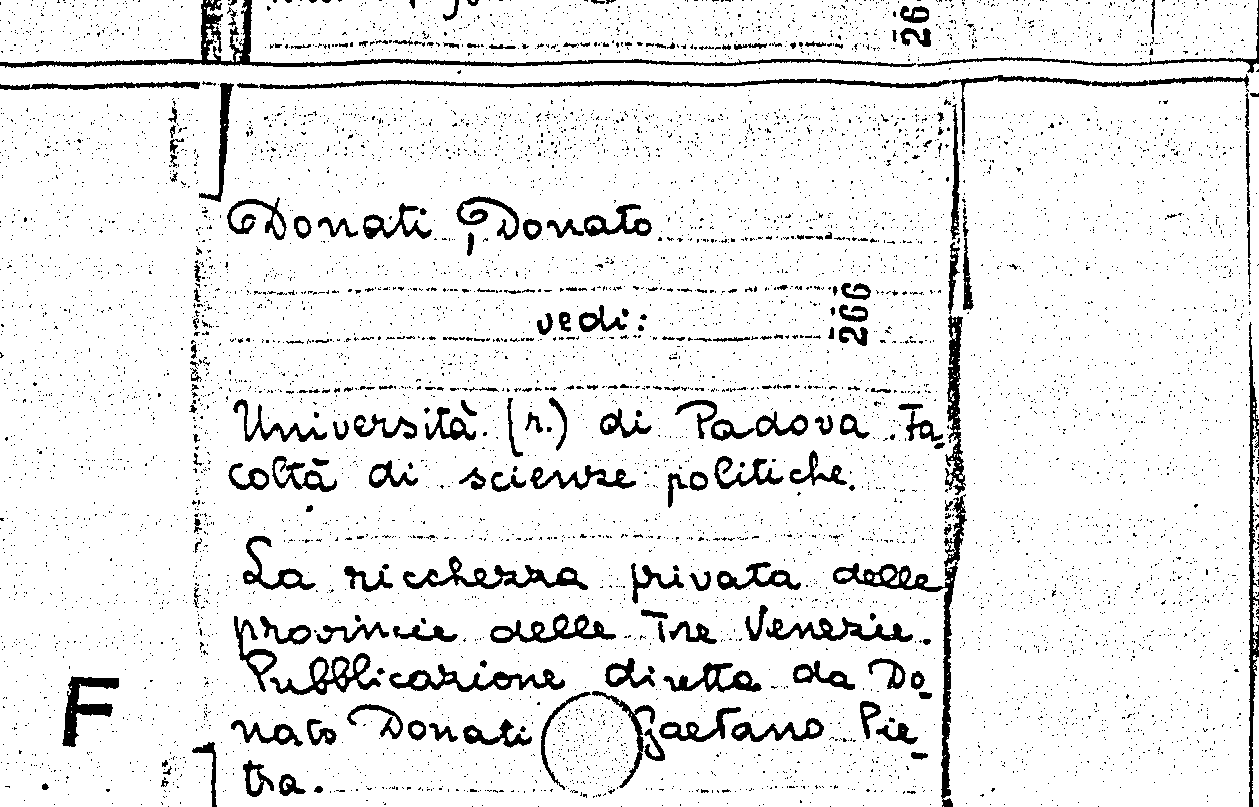 266
Donati, Donato
vedi:
266
Università (r.) di Padova. Fa-
coltà di scienze politiche.
La ricchezza privata delle
provincie delle Tre Venezie.
Pubblicazione diretta da Do-
nato Donati Gaetano Pie-
tra.
F